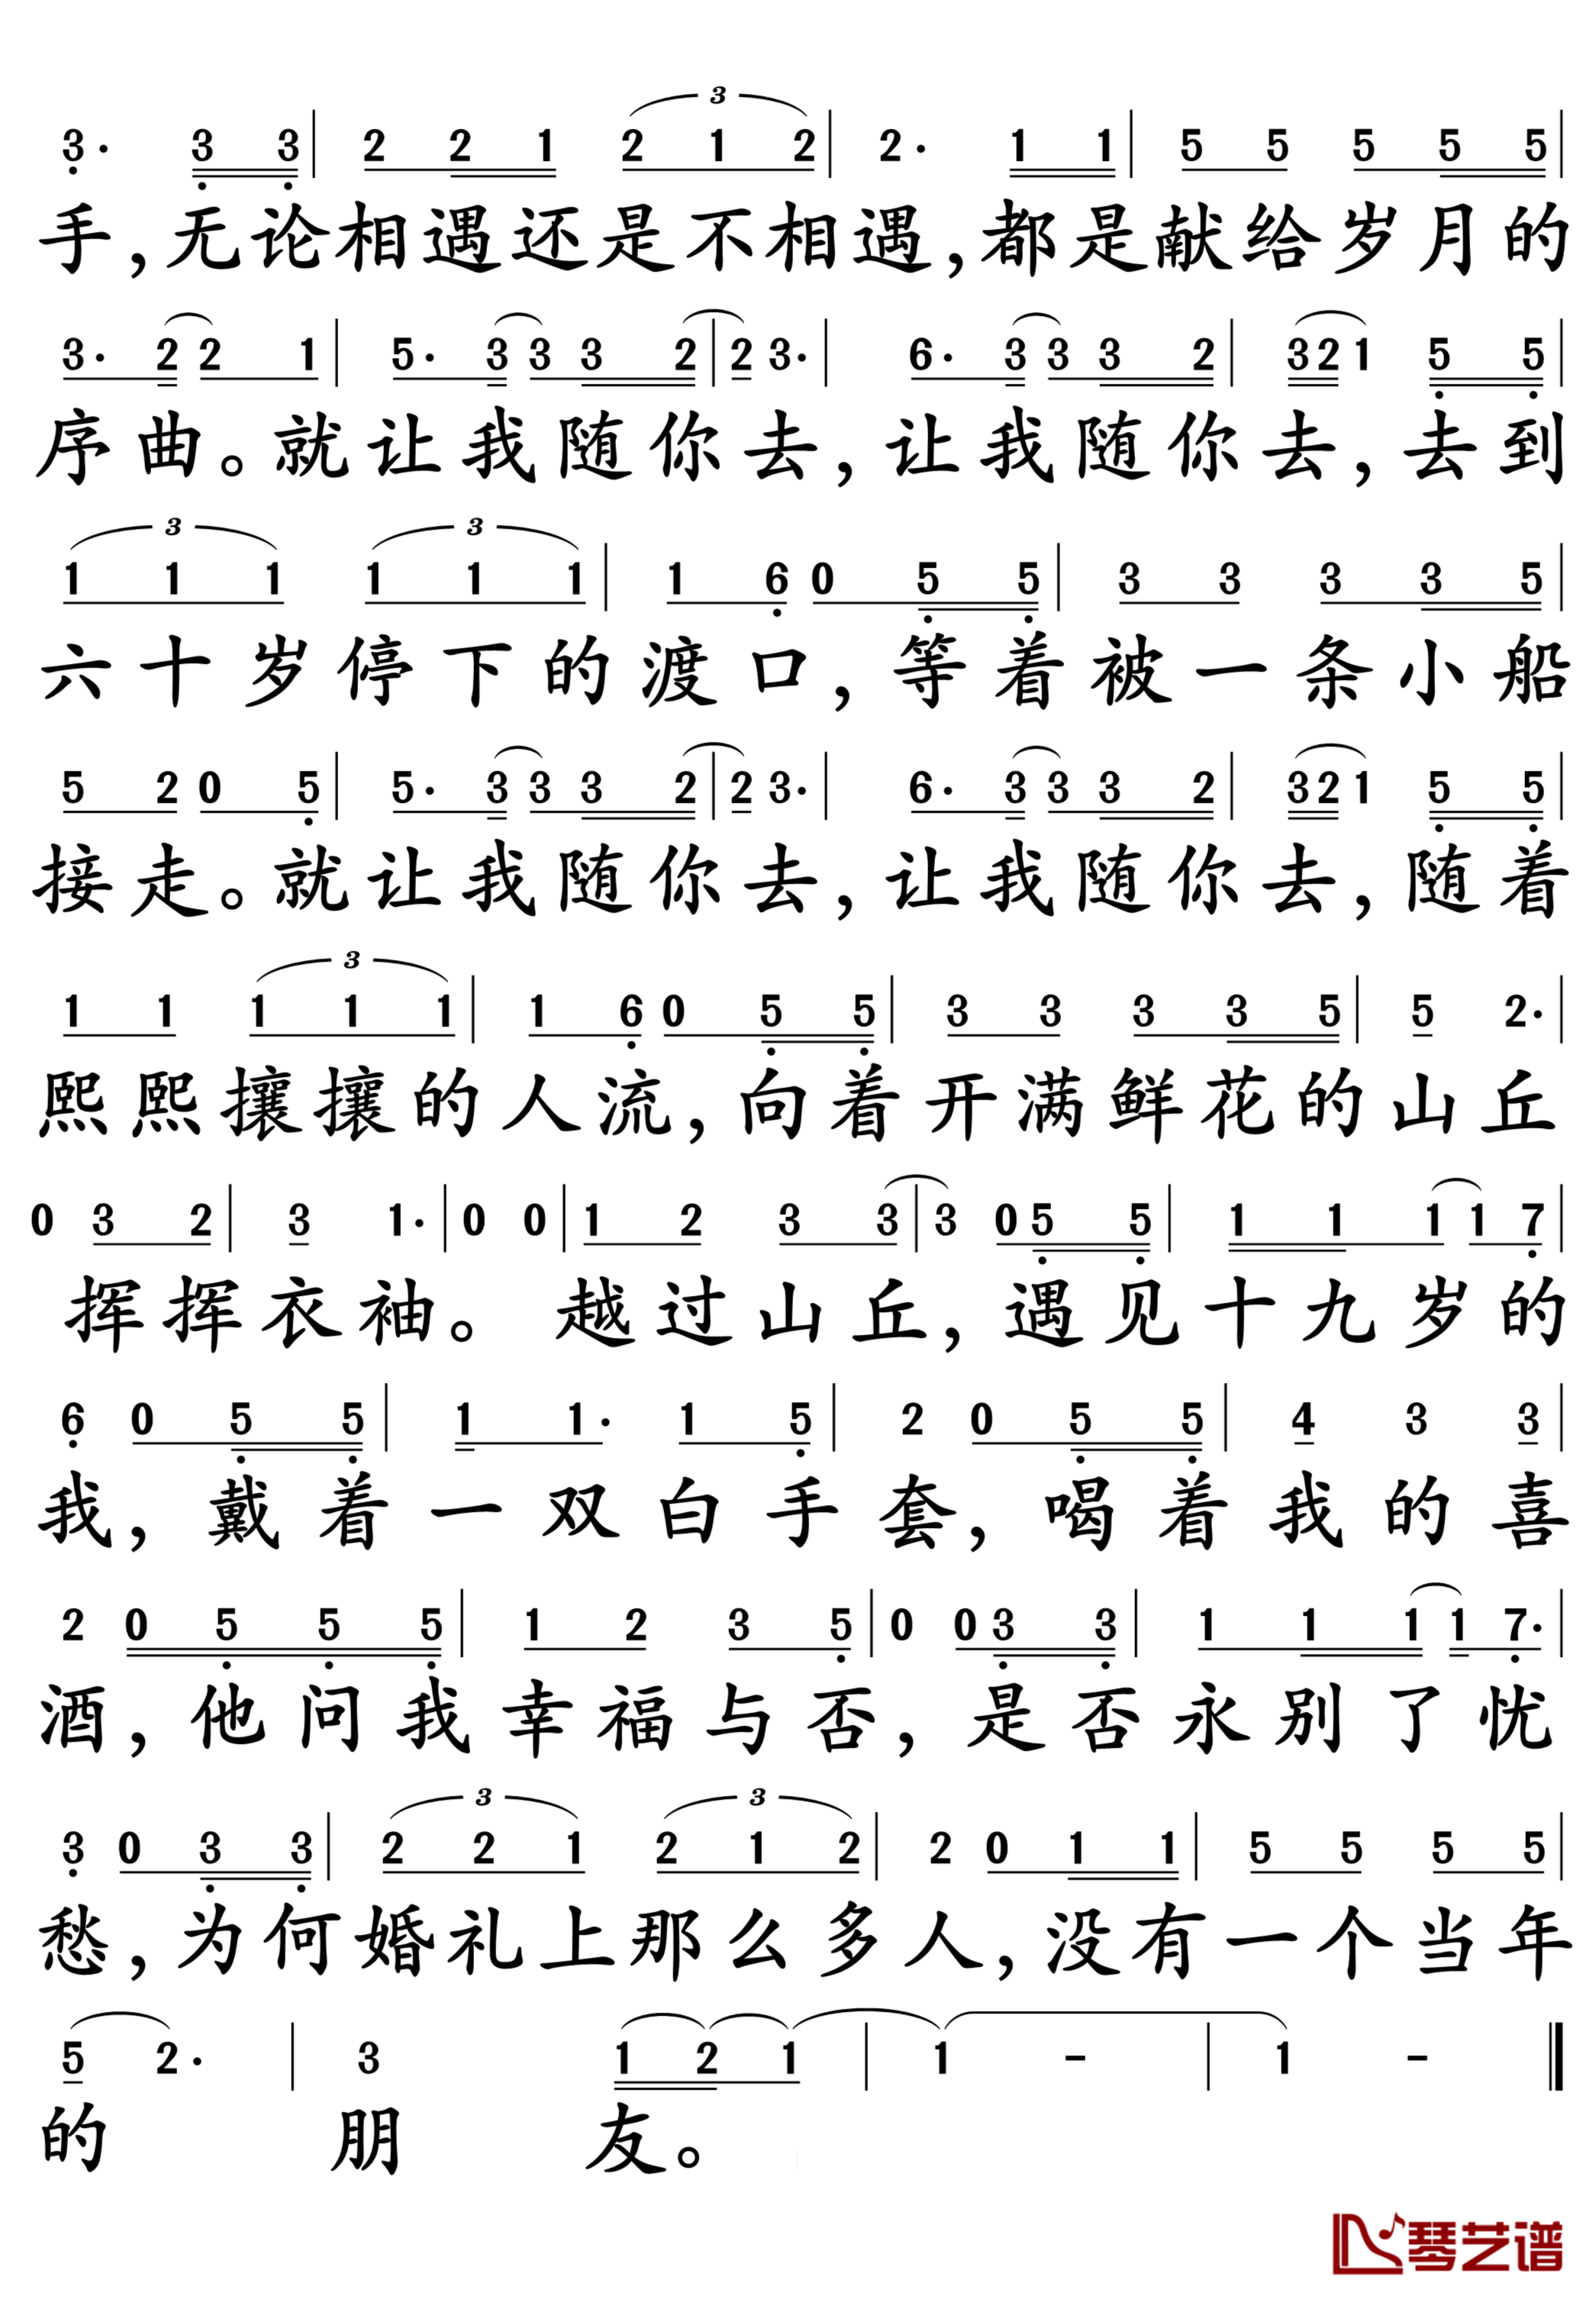 3
3· 3 3 | 2 2 1 2 1 2 | 2· 1 1 | 5 5 5 5 5 |
手,无论相遇还是不相遇,都是献给岁月的
3· 2 2 1 | 5· 3 3 3 2 | 2 3· | 6· 3 3 3 2 | 3 2 1 5 5 |
序曲。就让我随你去,让我随你去,去到
3 3
1 1 1 1 1 1 | 1 6 0 5 5 | 3 3 3 3 5 |
六十岁停下的渡口,等着被一条小船
5 2 0 5 | 5· 3 3 3 2 | 2 3· | 6· 3 3 3 2 | 3 2 1 5 5 |
接走。就让我随你去,让我随你去,随着
3
1 1 1 1 1 | 1 6 0 5 5 | 3 3 3 3 5 | 5 2· |
熙熙攘攘的人流,向着开满鲜花的山丘
0 3 2 | 3 1· | 0 0 | 1 2 3 3 | 3 0 5 5 | 1 1 1 1 7 |
挥挥衣袖。越过山丘,遇见十九岁的
6 0 5 5 | 1 1· 1 5 | 2 0 5 5 | 4 3 3 |
我,戴着一双白手套,喝着我的喜
2 0 5 5 5 | 1 2 3 5 | 0 0 3 3 | 1 1 1 1 7· |
酒,他问我幸福与否,是否永别了忧
3 3
3 0 3 3 | 2 2 1 2 1 2 | 2 0 1 1 | 5 5 5 5 |
愁,为何婚礼上那么多人,没有一个当年
5 2· | 3 1 2 1 | 1 - | 1 - ‖
的朋友。
琴艺谱